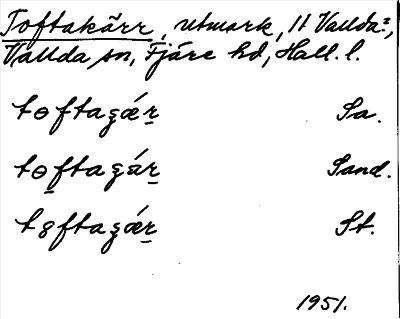 Toftakärr, utmark, 11 Vallda²,
Vallda sn, Fjäre hd, Hall. l.
tɵftagǽr Sa.
tɵftagár Sand.
tȣftagǽr St.
1951.